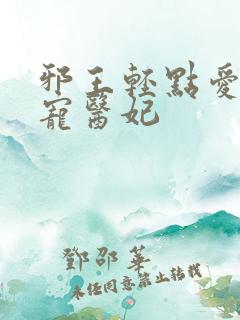 邪王輕點愛
寵醫妃
鄧邵華
未經同意禁止轉載